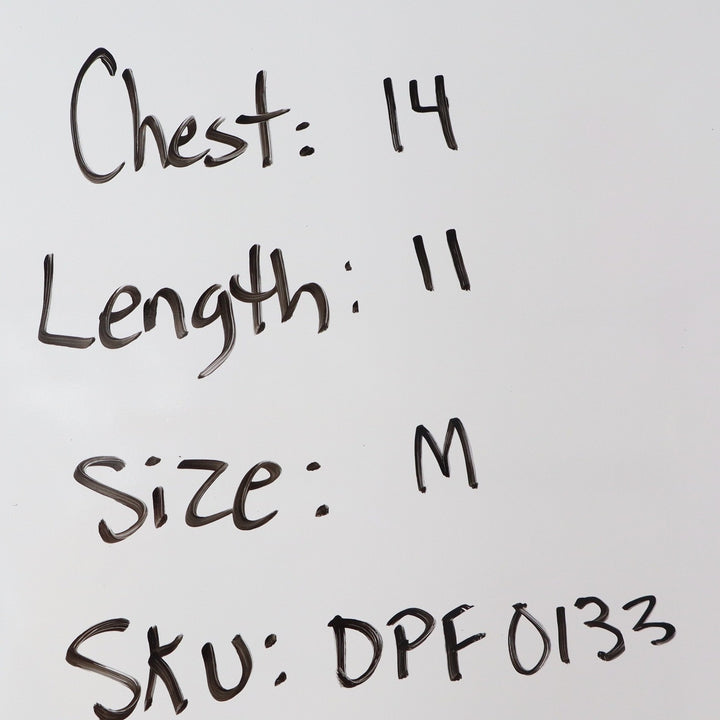 Chest: 14
Length: 11
Size: M
SKU: DPF0133